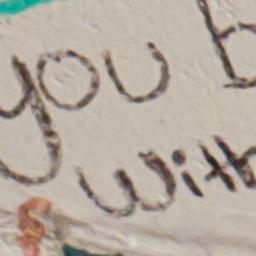 you b
with